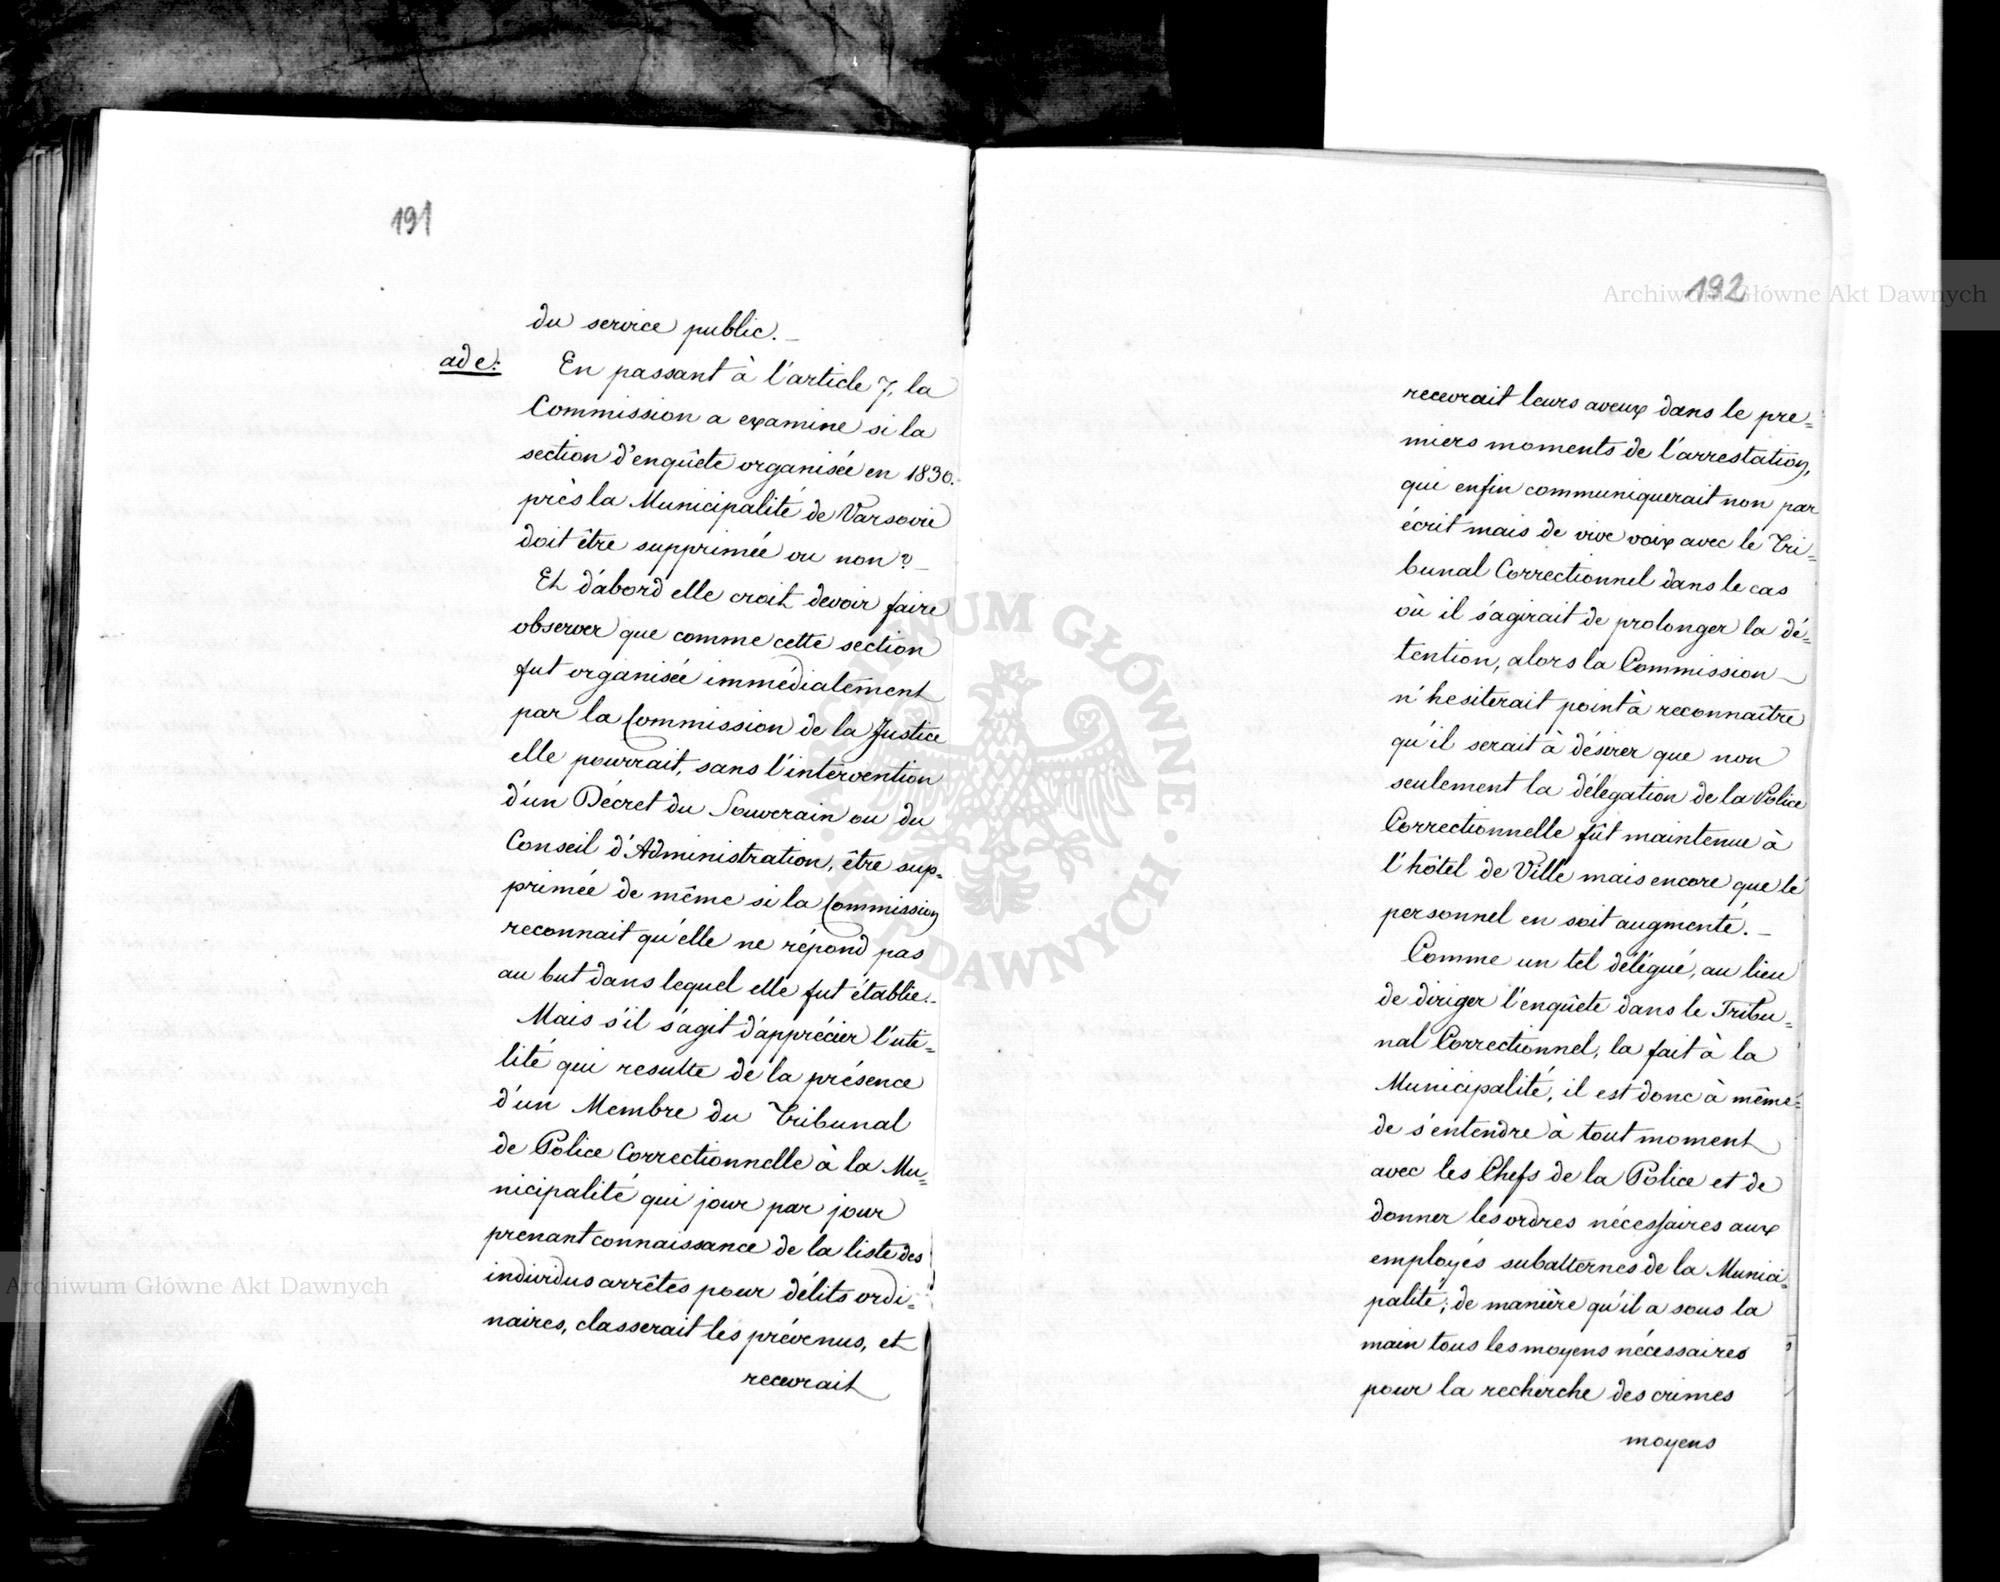 191
du service public._
ad e:
En passant à l'article 7, la
Commission a examine si la
section d'enquête organisée en 1830.
près la Municipalité de Varsovie
doit être supprimée ou non?_
Et d'abord elle croit devoir faire
observer que comme cette section
fut organisée immédiatement
par la Commission de la Justice
elle pourrait, sans l'intervention
d'un Décret du Souverain ou du
Conseil d'Administration, être sup=
primée de même si la Commission
reconnait qu'elle ne répond pas
au but dans lequel elle fut établie._
Mais s'il s'agit d'apprécier l'uti=
lité qui resulte de la présence
d'un Membre du Tribunal
de Police Correctionnelle à la Mu=
nicipalité qui jour par jour
prenant connaissance de la liste des
individus arrêtés pour délits ordi=
naires, classerait les prévenus, et
recevrait
192
recevrait leurs aveux dans le pre=
miers moments de l'arrestation,
qui enfin communiquerait non par
écrit mais de vive voix avec le Tri=
bunal Correctionnel dans le cas
où il s'agirait de prolonger la dé=
tention, alors la Commission
n'hesiterait point à reconnaître
qu'il serait à désirer que non
seulement la délégation de la Police
Correctionnelle fût maintenue à
l'hôtel de Ville mais encore que le
personnel en soit augmenté._
Comme un tel délégué, au lieu
de diriger l'enquête dans le Tribu=
nal Correctionnel, la fait à la
Municipalité, il est donc à même
de s'entendre à tout moment
avec les Chefs de la Police et de
donner les ordres nécessaires aux
employés subalternes de la Munici=
palité; de manière qu'il a sous la
main tous les moyens nécessaires
pour la recherche des crimes
moyens
Archiwum Główne Akt Dawnych
Archiwum Główne Akt Dawnych
ARCHIWUM GŁÓWNE · AKT DAWNYCH ·